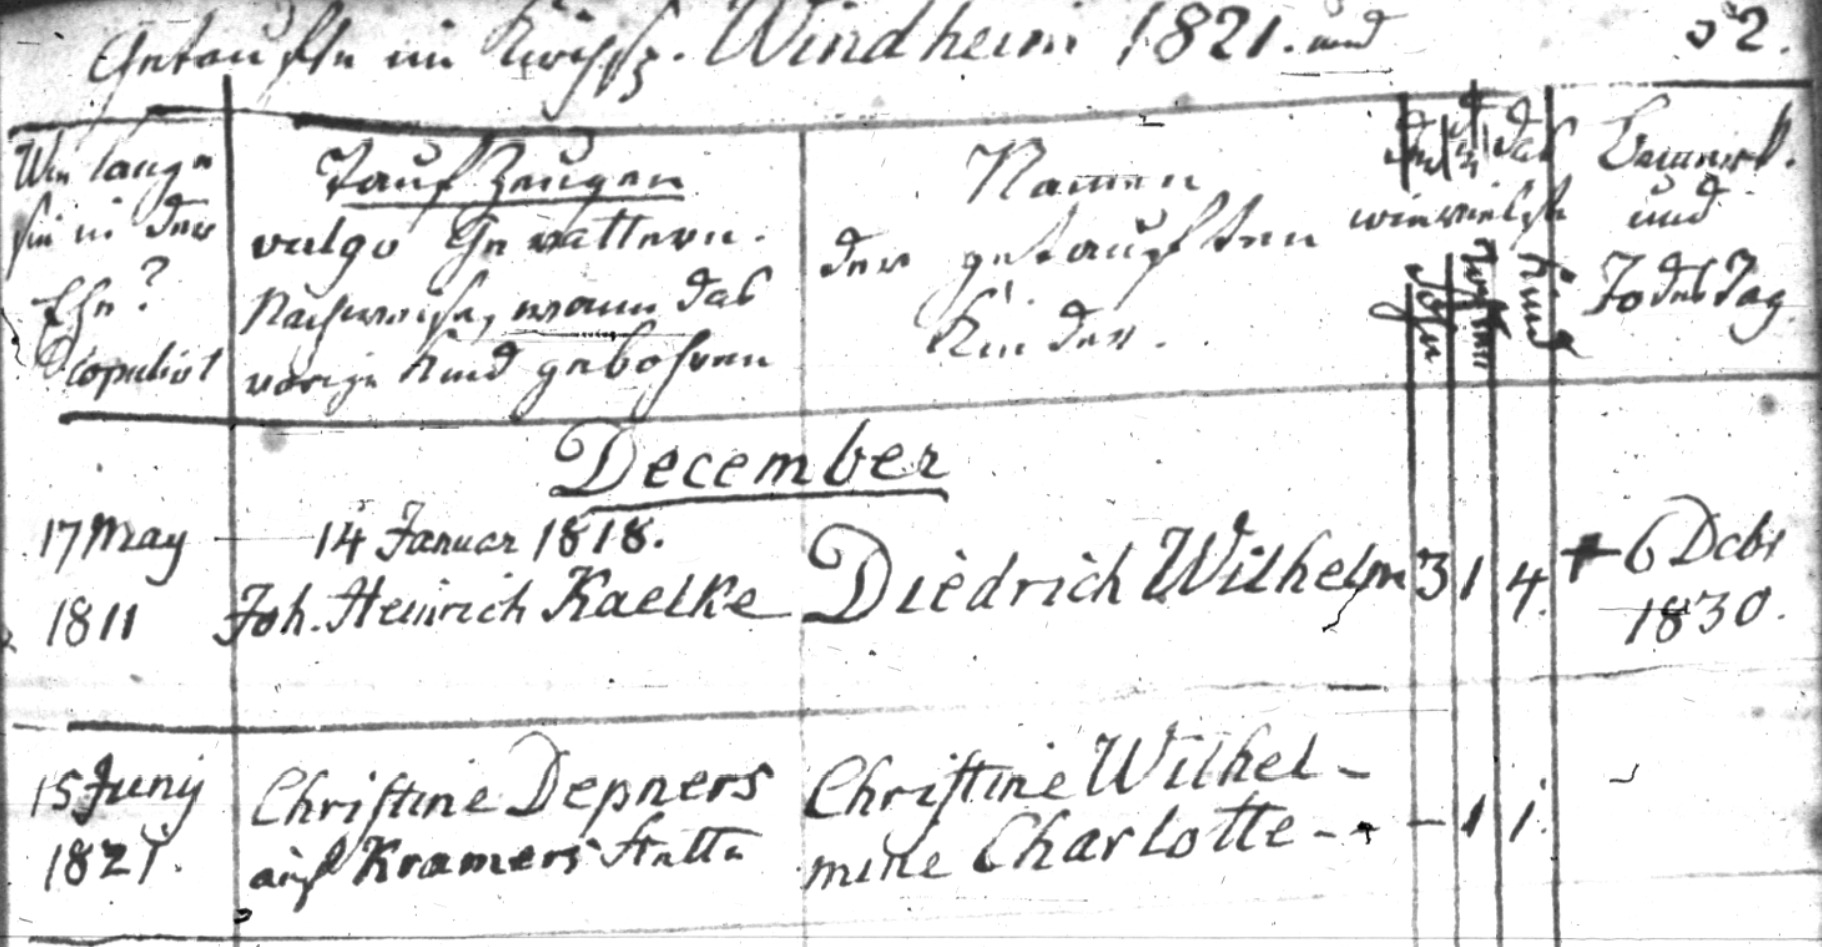 Getaufte im Kirchsp. Windheim 1821. und
52.
Wie lange
sie in der
Ehe?
Copulirt
Tauf Zeugen
vulgo Gevattern.
Nachweise, wann das
vorige Kind gebohren
Namen
der getauften
Kinder.
der die das
wievielste
Sohn
Tochter
Kind
Bemerk.
und
Todes Tag
December
17 May
1811
14 Januar 1818.
Joh. Heinrich Kaelke
Diedrich Wilhelm
3 1 4.
+ 6 Dcbr
1830.
15 Juny
1821.
Christine Depners
auf Kramers Stette
Christine Wilhel-
mine Charlotte - -
- 1 1.